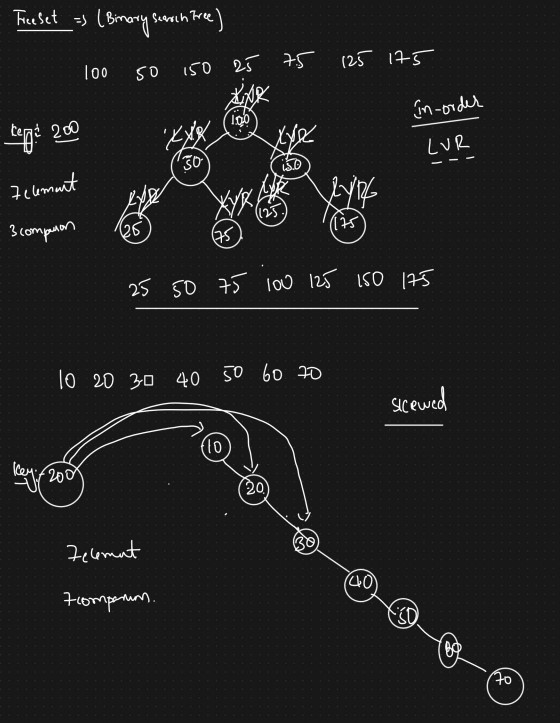 TreeSet => (Binary Search Tree)
100 50 150 25 75 125 175
in-order
LVR
key: 200
7 element
3 comparison
LVR
100
LVR LVR
50 150
LVR LVR LVR LVR
25 75 125 175
25 50 75 100 125 150 175
10 20 30 40 50 60 70
skewed
key:- 200
10
20
30
40
50
60
70
7 element
7 comparison.